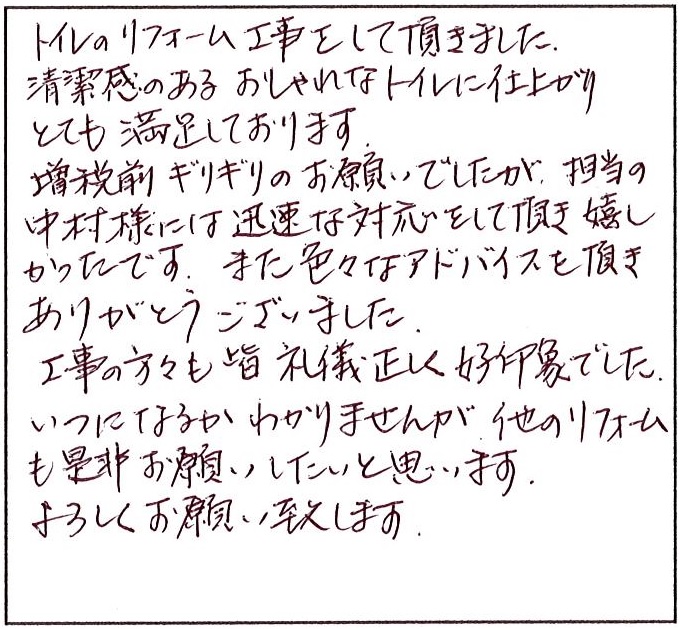 トイレのリフォーム工事をして頂きました.
清潔感のある おしゃれなトイレに仕上がり
とても 満足しております.
増税前 ギリギリの お願いでしたが、担当の
中村様には 迅速な対応をして頂き 嬉し
かったです. また 色々なアドバイスを頂き
ありがとうございました.
工事の方々も 皆 礼儀正しく 好印象でした.
いつになるか わかりませんが 他のリフォーム
も是非 お願いしたいと思います.
よろしくお願い致します.